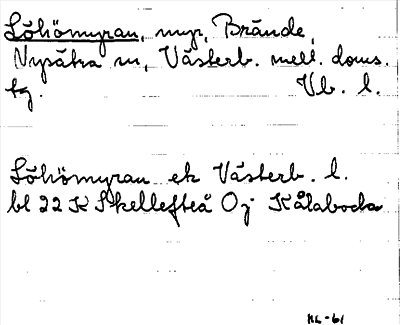 Löhömyran, myr, Brände,
Nysätra sn, Västerb. mell. doms.
tg. Vb. l.
Löhömyran ek Västerb. l.
bl 22 K Skellefteå Oj Kålaboda
HL-61